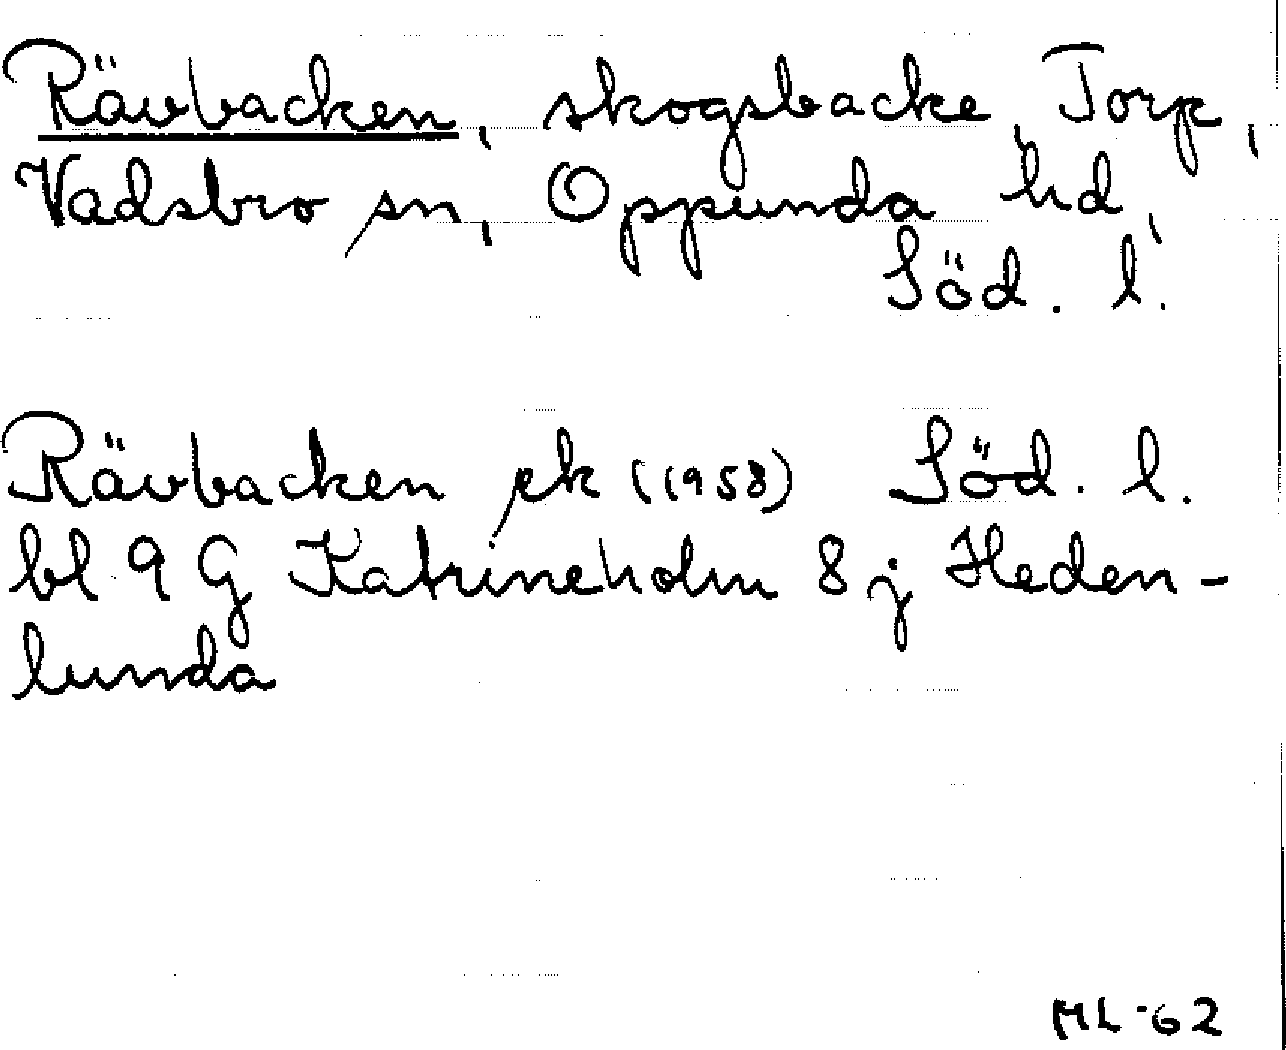 Rävbacken, skogsbacke, Torp,
Vadsbro sn, Oppunda hd,
Söd. l.
Rävbacken ek (1958) Söd. l.
bl 9 G Katrineholm 8 j Heden-
lunda
ML-62